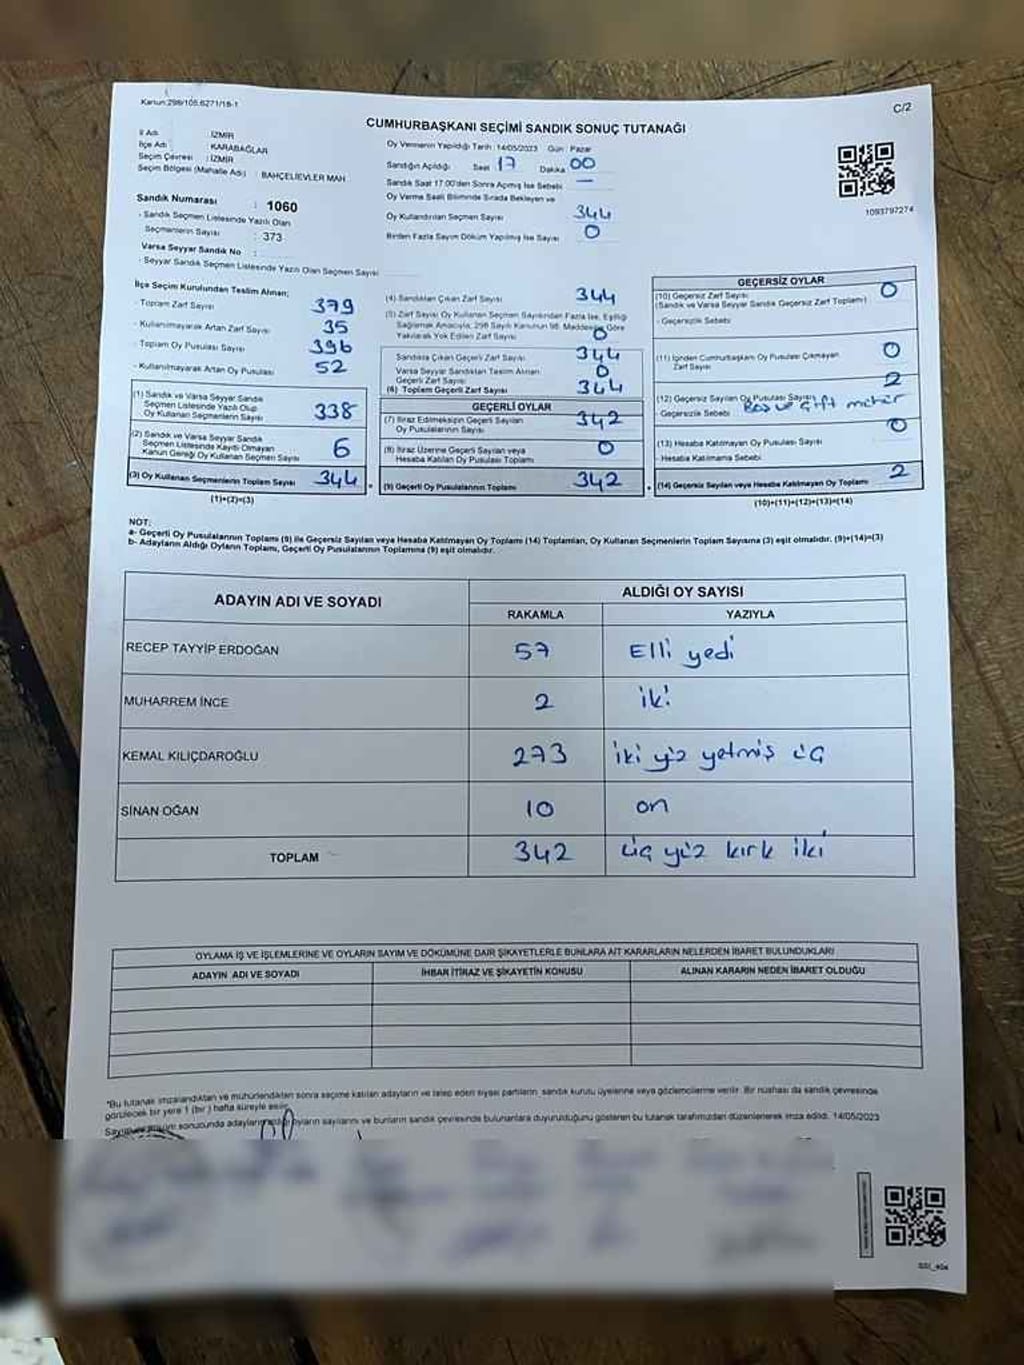 Kanun:298/105,6271/18-1
C/2
CUMHURBAŞKANI SEÇİMİ SANDIK SONUÇ TUTANAĞI
İl Adı : İZMİR
İlçe Adı : KARABAĞLAR
Seçim Çevresi : İZMİR
Seçim Bölgesi (Mahalle Adı) : BAHÇELİEVLER MAH.
Sandık Numarası : 1060
- Sandık Seçmen Listesinde Yazılı Olan
Seçmenlerin Sayısı : 373
Varsa Seyyar Sandık No :
- Seyyar Sandık Seçmen Listesinde Yazılı Olan Seçmen Sayısı
Oy Vermenin Yapıldığı Tarih :14/05/2023 Gün : Pazar
Sandığın Açıldığı Saat 17 Dakika 00
Sandık Saat 17.00'den Sonra Açılmış İse Sebebi —
Oy Verme Saati Bitiminde Sırada Bekleyen ve
Oy Kullandırılan Seçmen Sayısı 344
Birden Fazla Sayım Döküm Yapılmış İse Sayısı 0
1093797274
İlçe Seçim Kurulundan Teslim Alınan;
- Toplam Zarf Sayısı 379
- Kullanılmayarak Artan Zarf Sayısı 35
- Toplam Oy Pusulası Sayısı 396
- Kullanılmayarak Artan Oy Pusulası 52
(1) Sandık ve Varsa Seyyar Sandık
Seçmen Listesinde Yazılı Olup
Oy Kullanan Seçmenlerin Sayısı 338
(2) Sandık ve Varsa Seyyar Sandık
Seçmen Listesinde Kayıtlı Olmayan
Kanun Gereği Oy Kullanan Seçmen Sayısı 6
(3) Oy Kullanan Seçmenlerin Toplam Sayısı 344
(1)+(2)=(3)
(4) Sandıktan Çıkan Zarf Sayısı 344
(5) Zarf Sayısı Oy Kullanan Seçmen Sayısından Fazla İse, Eşitliği
Sağlamak Amacıyla, 298 Sayılı Kanunun 98. Maddesine Göre
Yakılarak Yok Edilen Zarf Sayısı 0
Sandıkta Çıkan Geçerli Zarf Sayısı 344
Varsa Seyyar Sandıktan Teslim Alınan
Geçerli Zarf Sayısı 0
(6) Toplam Geçerli Zarf Sayısı 344
GEÇERLİ OYLAR
(7) İtiraz Edilmeksizin Geçerli Sayılan
Oy Pusulalarının Sayısı 342
(8) İtiraz Üzerine Geçerli Sayılan veya
Hesaba Katılan Oy Pusulası Toplamı 0
(9) Geçerli Oy Pusulalarının Toplamı 342
GEÇERSİZ OYLAR
(10) Geçersiz Zarf Sayısı 0
(Sandık ve Varsa Seyyar Sandık Geçersiz Zarf Toplamı)
- Geçersizlik Sebebi
(11) İçinden Cumhurbaşkanı Oy Pusulası Çıkmayan
Zarf Sayısı 0
(12) Geçersiz Sayılan Oy Pusulası Sayısı 2
- Geçersizlik Sebebi Boş ve çift mühür
(13) Hesaba Katılmayan Oy Pusulası Sayısı 0
- Hesaba Katılmama Sebebi
(14) Geçersiz Sayılan veya Hesaba Katılmayan Oy Toplamı 2
(10)+(11)+(12)+(13)=(14)
NOT:
a- Geçerli Oy Pusulalarının Toplamı (9) ile Geçersiz Sayılan veya Hesaba Katılmayan Oy Toplamı (14) Toplamları, Oy Kullanan Seçmenlerin Toplam Sayısına (3) eşit olmalıdır. (9)+(14)=(3)
b- Adayların Aldığı Oyların Toplamı, Geçerli Oy Pusulalarının Toplamına (9) eşit olmalıdır.
ADAYIN ADI VE SOYADI
ALDIĞI OY SAYISI
RAKAMLA YAZIYLA
RECEP TAYYİP ERDOĞAN 57 Elli yedi
MUHARREM İNCE 2 iki
KEMAL KILIÇDAROĞLU 273 iki yüz yetmiş üç
SİNAN OĞAN 10 on
TOPLAM 342 üç yüz kırk iki
OYLAMA İŞ VE İŞLEMLERİNE VE OYLARIN SAYIM VE DÖKÜMÜNE DAİR ŞİKAYETLERLE BUNLARA AİT KARARLARIN NELERDEN İBARET BULUNDUKLARI
ADAYIN ADI VE SOYADI İHBAR İTİRAZ VE ŞİKAYETİN KONUSU ALINAN KARARIN NEDEN İBARET OLDUĞU
*Bu tutanak imzalandıktan ve mühürlendikten sonra seçime katılan adayların ve talep eden siyasi partilerin sandık kurulu üyelerine veya gözlemcilerine verilir. Bir nüshası da sandık çevresinde
görülecek bir yere 1 (bir) hafta süreyle asılır.
sonucunda adayların oyların sayılarını ve bunların sandık çevresinde bulunanlara duyurulduğunu gösteren bu tutanak tarafımızdan düzenlenerek imza edildi. 14/05/2023